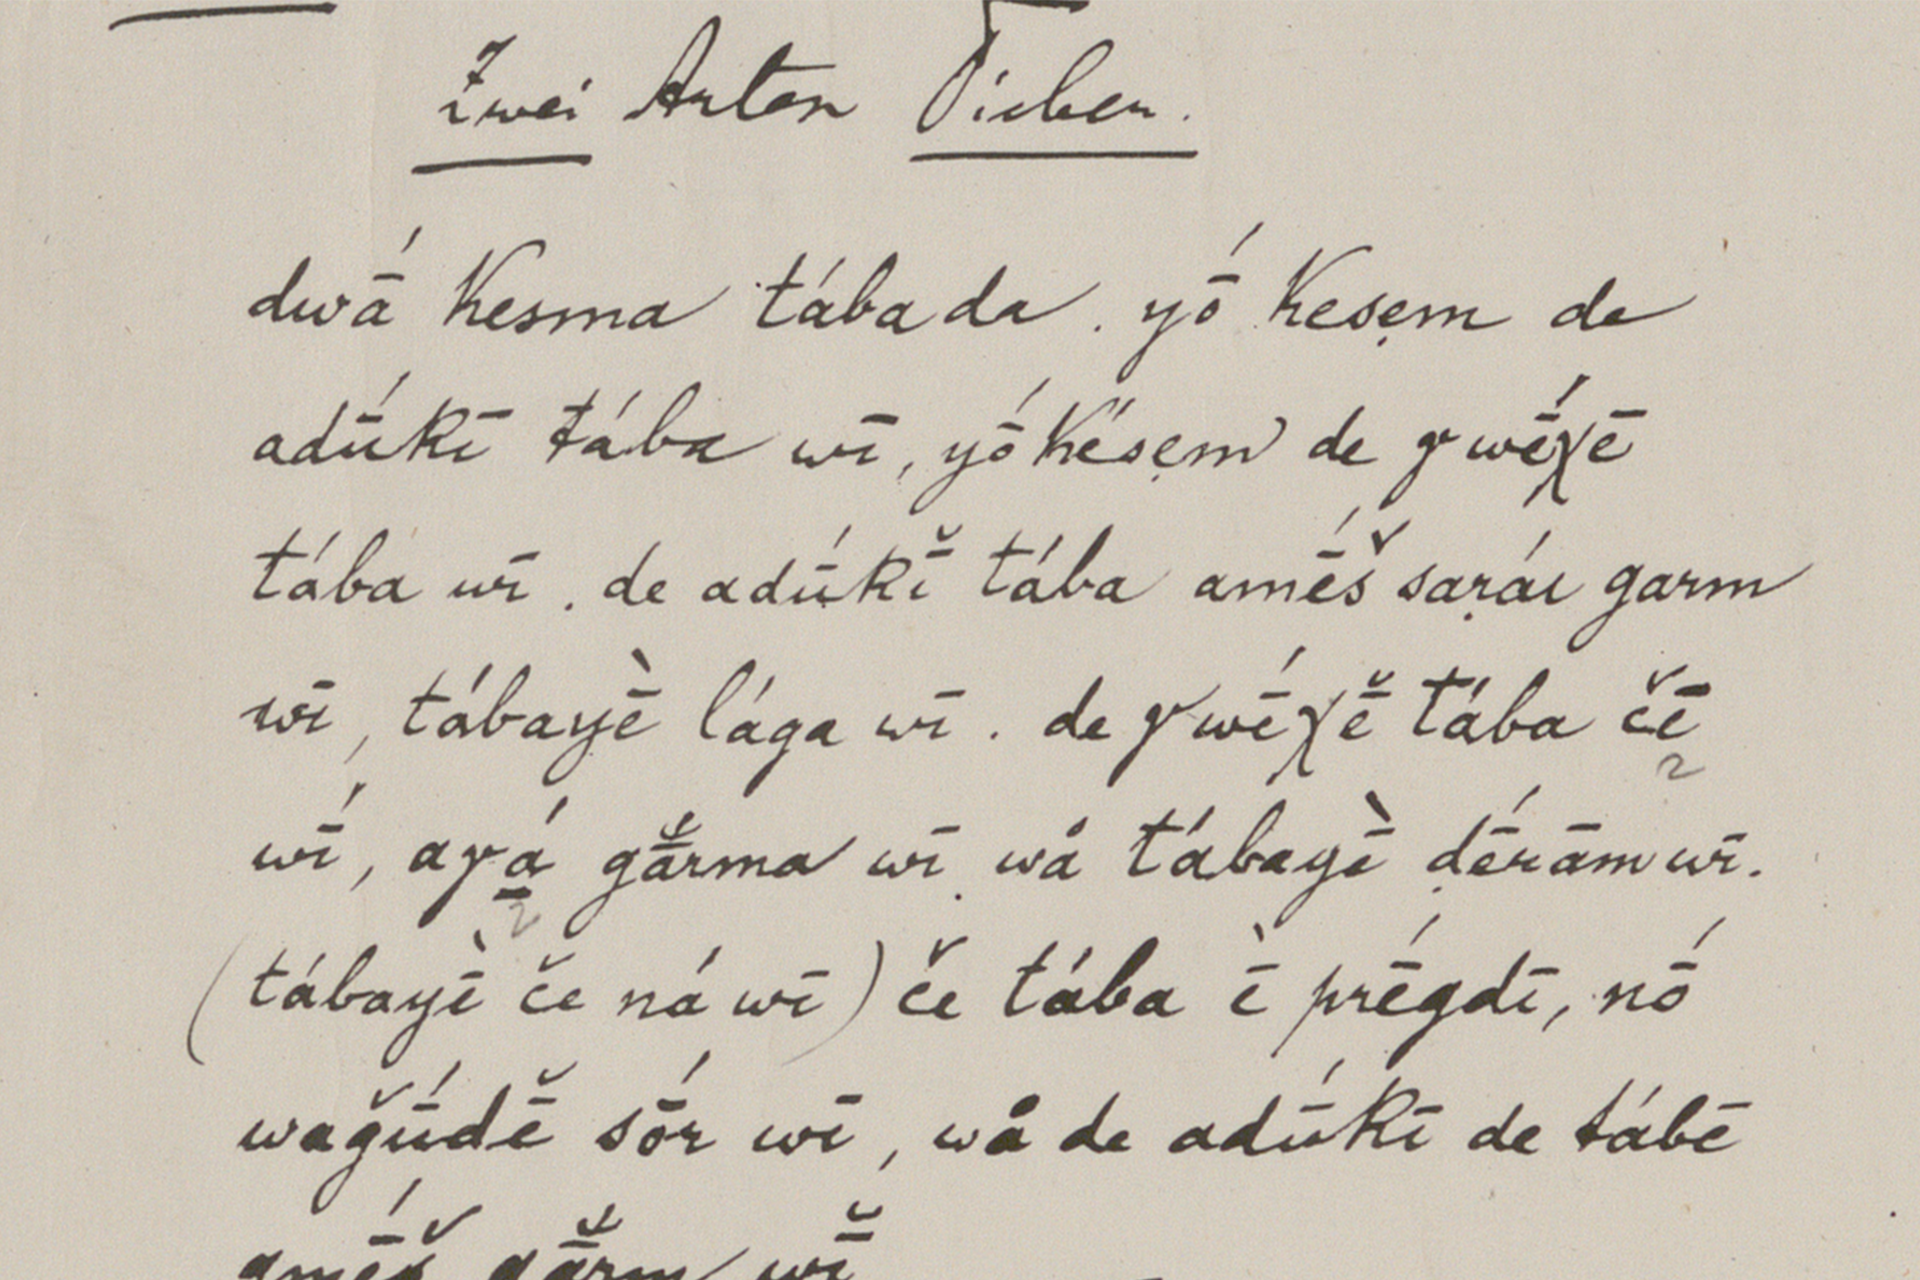 Zwei Arten Fieber.
dwā́ kesma tába da. yṓ kesẹm de
adū́kī tába wī, yṓ késẹm de γwḗχē
tába wī. de adū́kī̆ tába amḗš saṛáı garm
wī, tábayḕ lága wī. de γwḗχē̆ tába čē
wī́, aγá gā̆rma wī wå tábayī̀ ḍērām wī.
(tábayī̀ če ná wī) če tába ī̀ prḗgdī, nṓ
waǧū́dē̆ sṓr wī, wå de adū́kī de tábē
amḗš gā̆rm wī̆